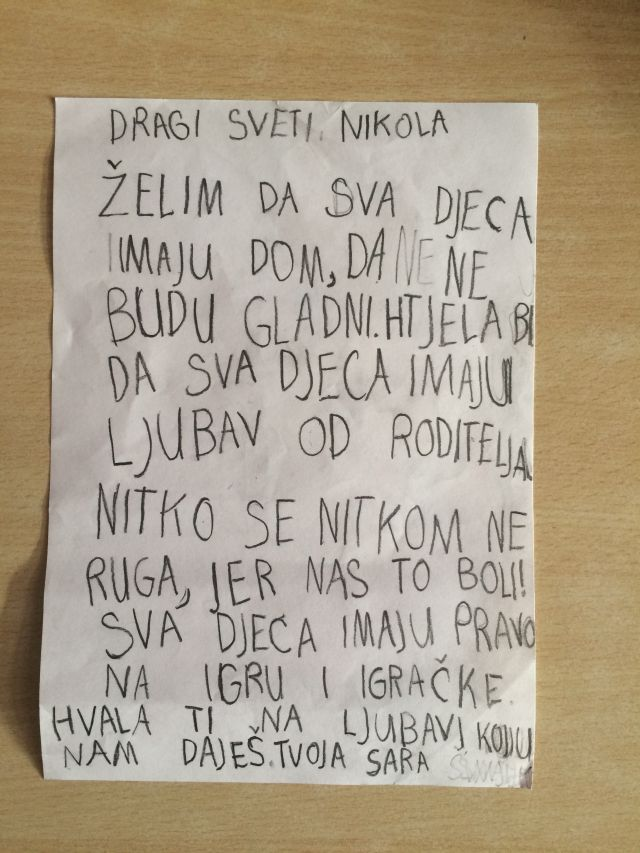 DRAGI SVETI. NIKOLA
ŽELIM DA SVA DJECA
IMAJU DOM, DA NE NE
BUDU GLADNI. HTJELA BI
DA SVA DJECA IMAJU
LJUBAV OD RODITELJA.
NITKO SE NITKOM NE
RUGA, JER NAS TO BOLI!
SVA DJECA IMAJU PRAVO
NA IGRU I IGRAČKE.
HVALA TI NA LJUBAVI KOJU
NAM DAJEŠ. TVOJA SARA